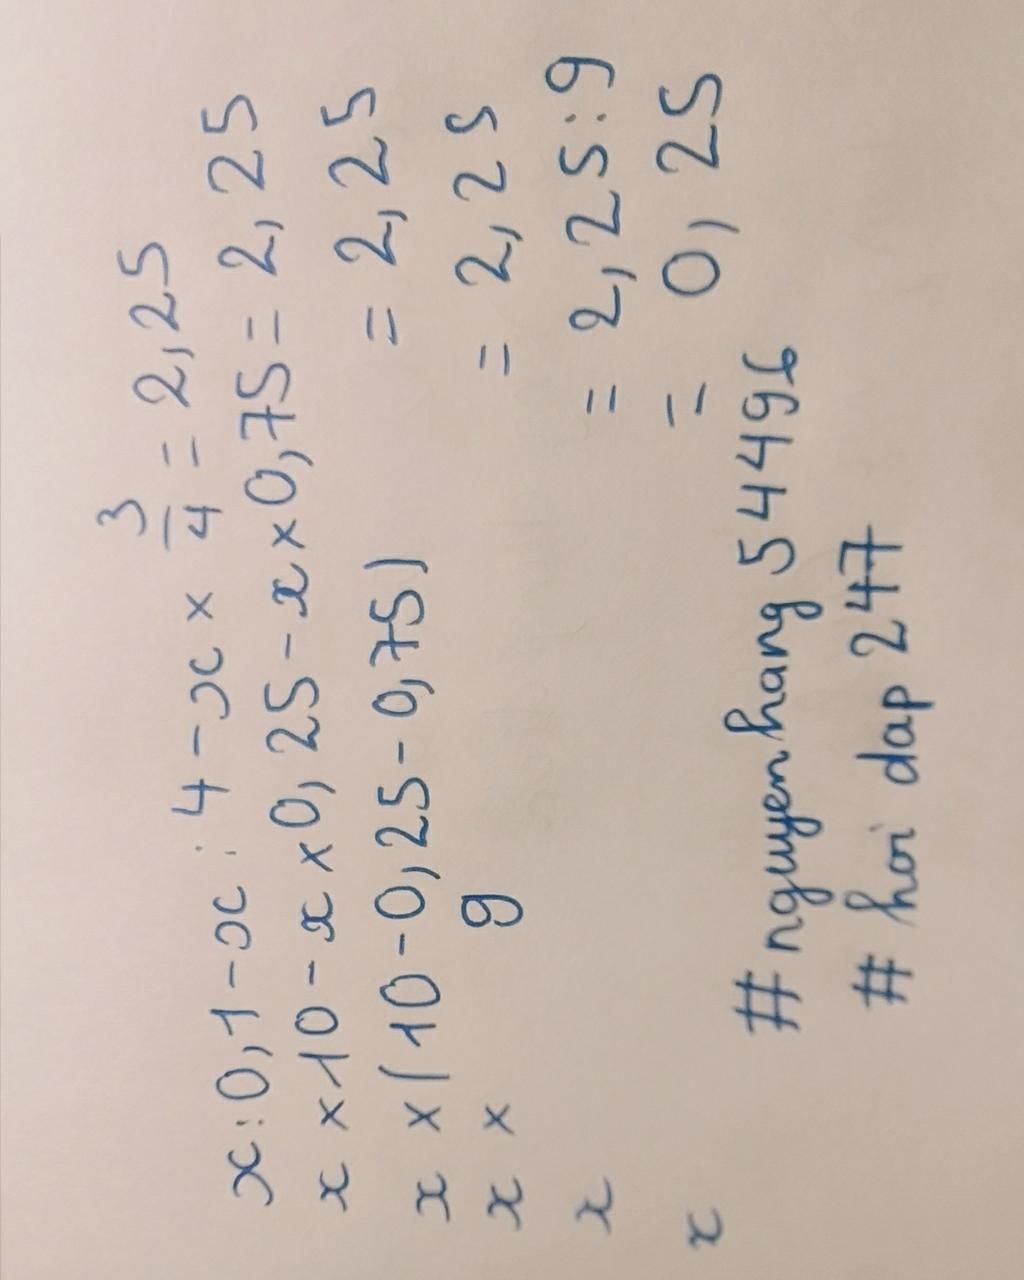 x : 0,1 - x : 4 - x × 3/4 = 2,25
x × 10 - x × 0,25 - x × 0,75 = 2,25
x × (10 - 0,25 - 0,75) = 2,25
x × 9 = 2,25
x = 2,25 : 9
x = 0,25
# nguyenhang 54496
# hoi dap 247